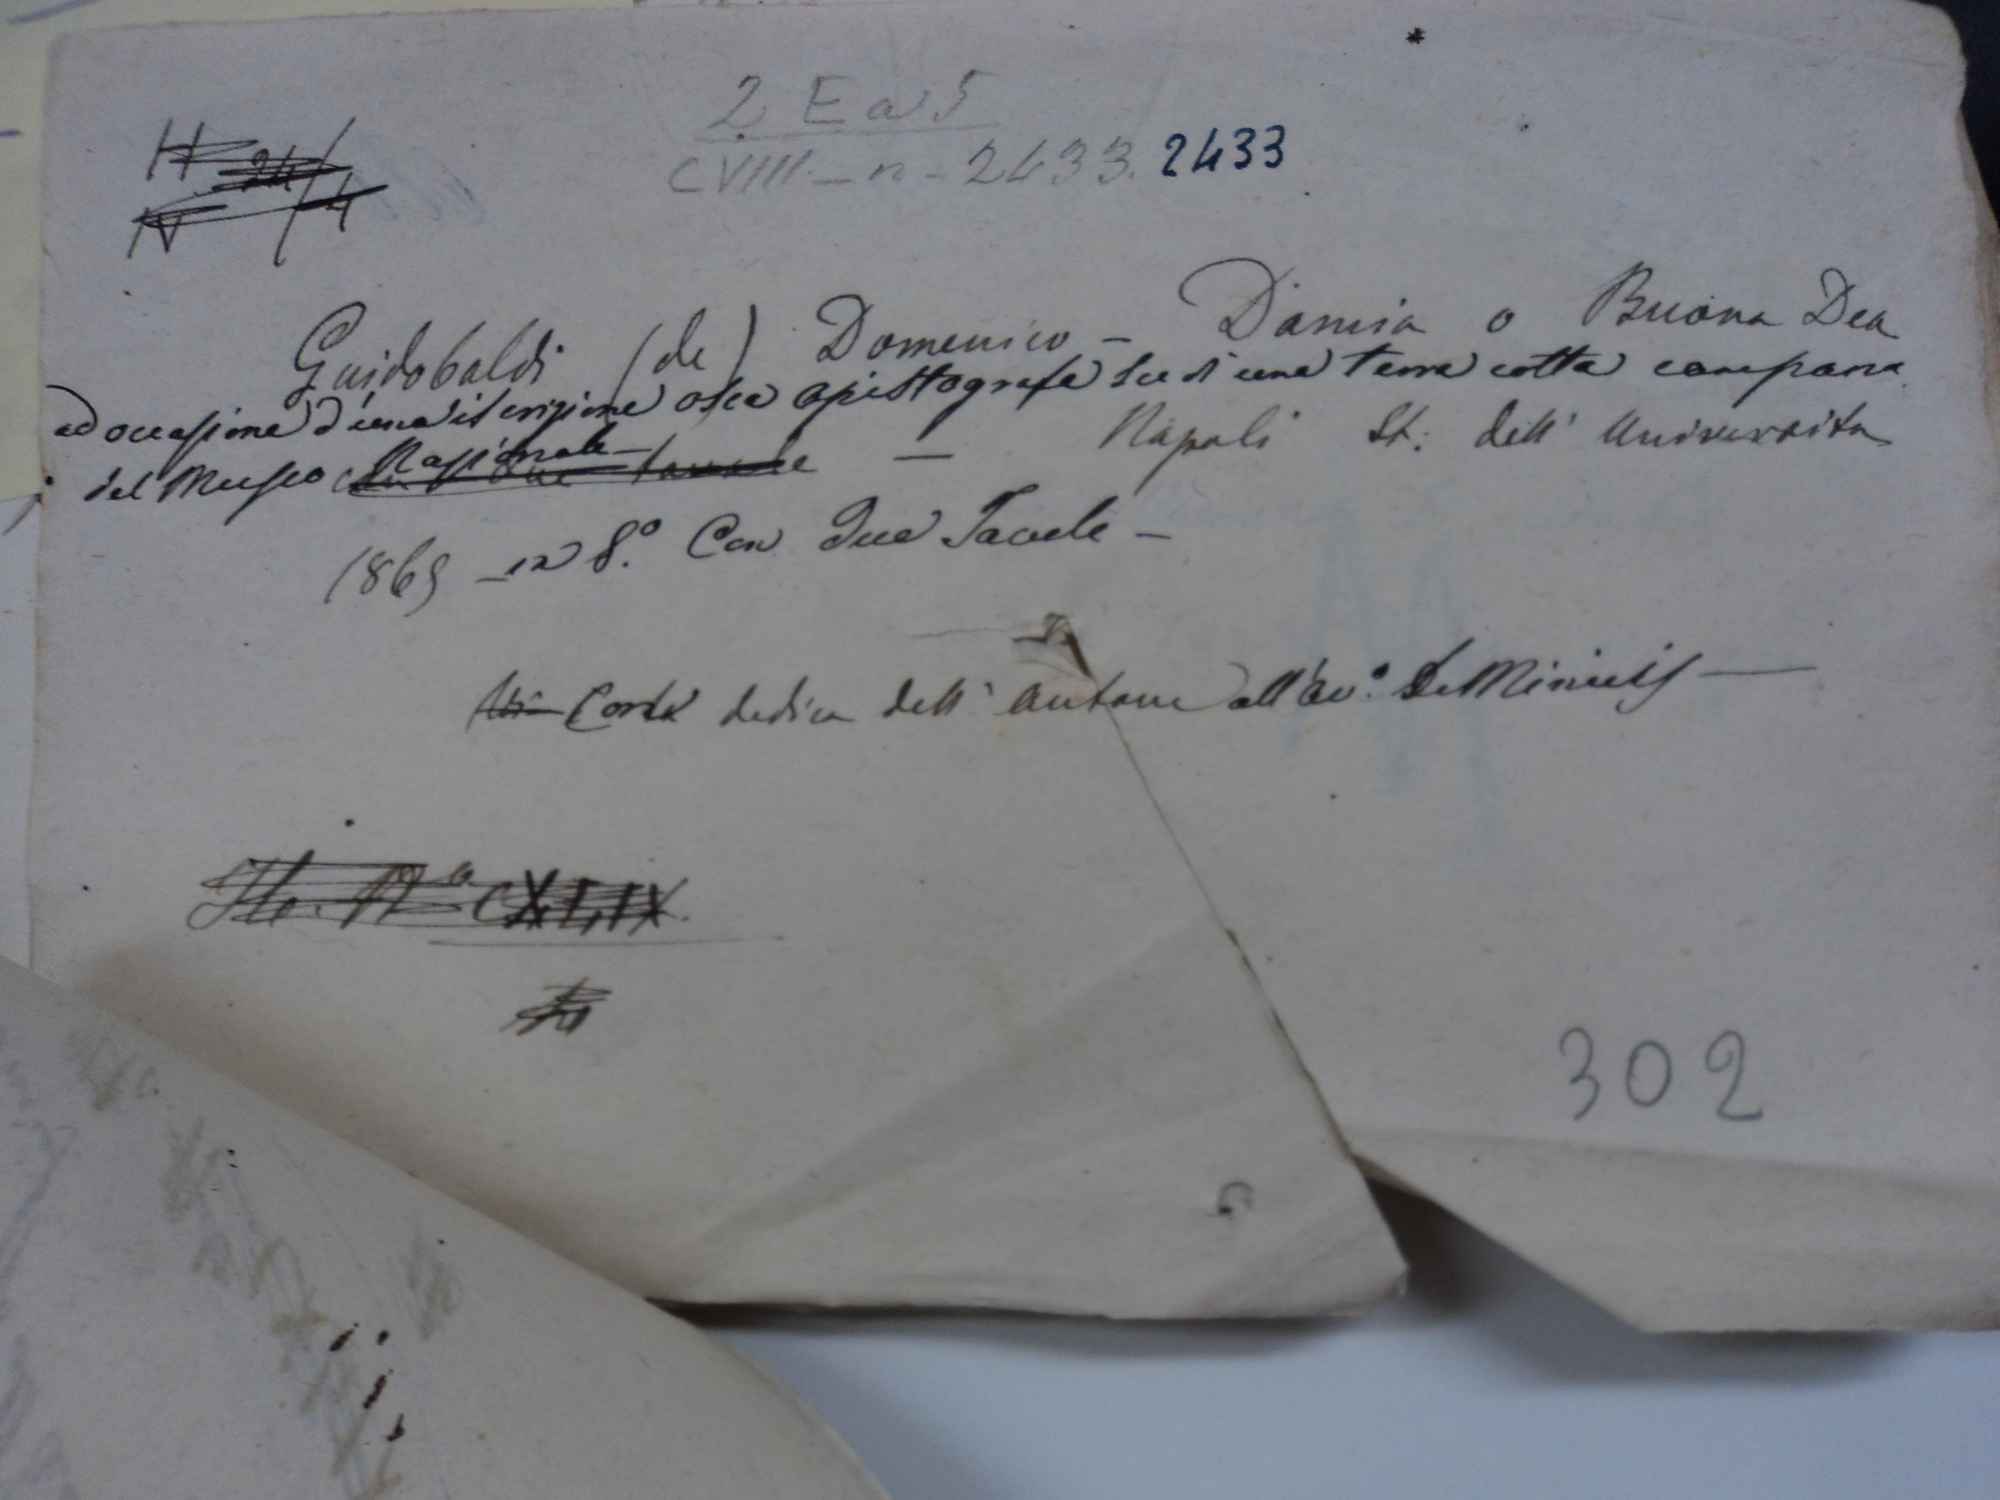 2 E a 5
CVIII - n - 2433. 2433
H 24/
N /4
Guidobaldi (de) Domenico - Damia o Buona Dea
ad occasione d'una iscrizione osca opistografa su di una terra cotta campana
del Museo Nazionale - Napoli St: dell' Università
con due tavole
1865 - in 8.º Con due Tavole -
Con dedica dell' autore all'Av.º De Minicis
N.º CXLIX
302